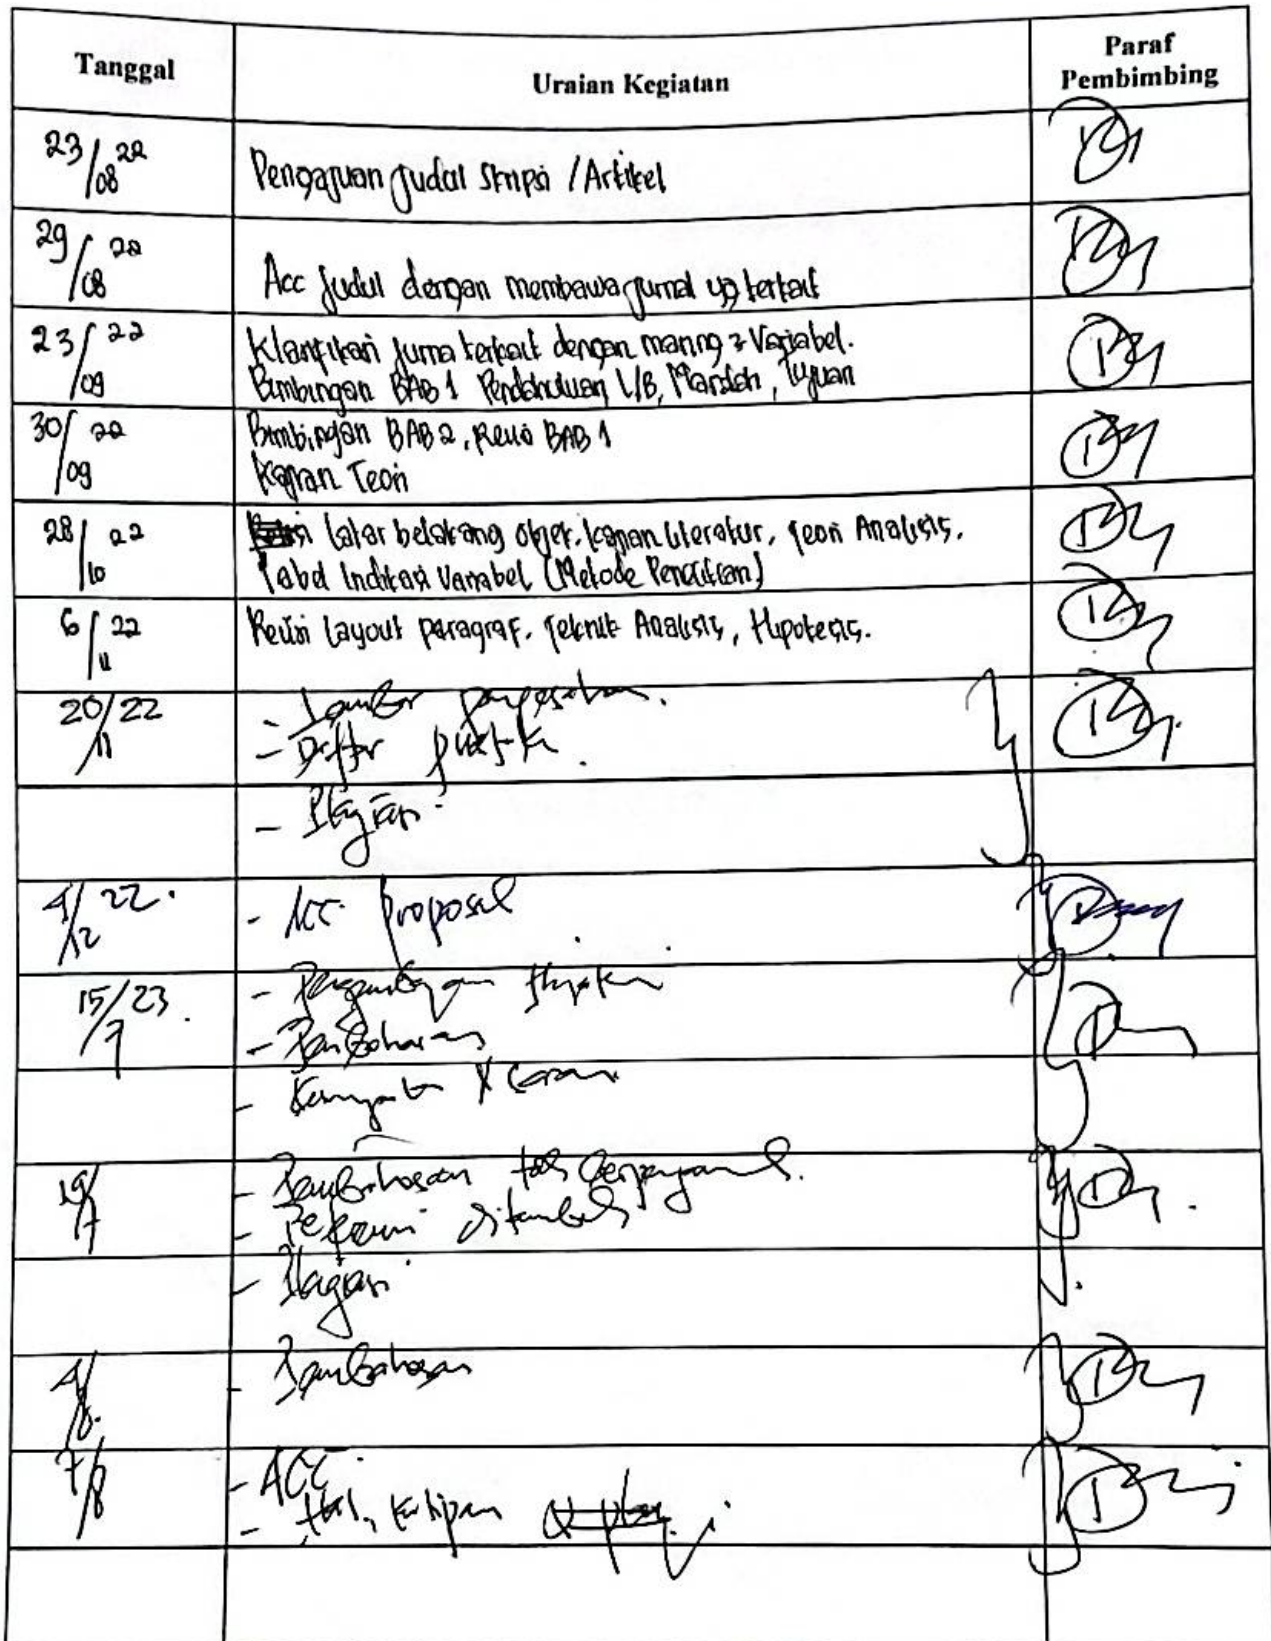 Tanggal
Uraian Kegiatan
Paraf
Pembimbing
23/08 22
Pengajuan Judul Skripsi / Artikel
29/08 22
Acc Judul dengan membawa jurnal yg terkait
23/09 22
Klarifikasi jurnal terkait dengan masing2 Variabel.
Bimbingan BAB 1 Pendahuluan L/B, Masalah, Tujuan
30/09 22
Bimbingan BAB 2, Revisi BAB 1
Kajian Teori
28/10 22
latar belakang objek, kajian literatur, Teori Analisis,
Tabel Indikasi Variabel (Metode Penelitian)
6/11 22
Revisi layout paragraf, Teknik Analisis, Hipotesis.
20/11 22
- Lembar pengesahan.
- Daftar pustaka.
- Plagiasi
4/12 22.
- Acc proposal
15/7 23.
- Pengembangan
- Pembahasan
- Saran
19/7
- Pembahasan
- ditambah
- Plagiasi
4/8.
- Pembahasan
7/8
- ACC
- Hal, kutipan